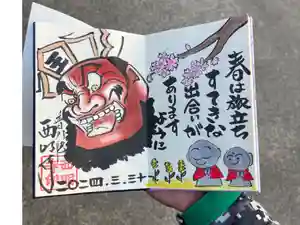 春は旅立ち
すてきな
出合いが
あります
ように
王
西明寺
二〇二四.三.三十一